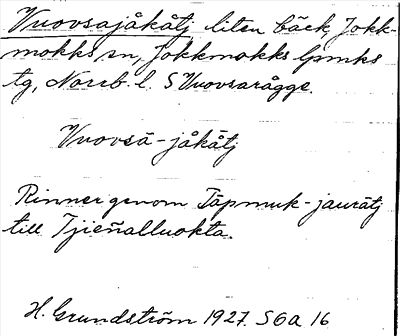 Vuovsajåkåtj liten bäck, Jokk-
mokks sn, Jokkmokks lpmks
tg, Norrb. l. S Vuovsarågge.
Vuovsā-jåkåtj
Rinner genom Tāpmuk-jaurātj
till Tjieñalluokta.
H. Grundström 1927. SOA 16